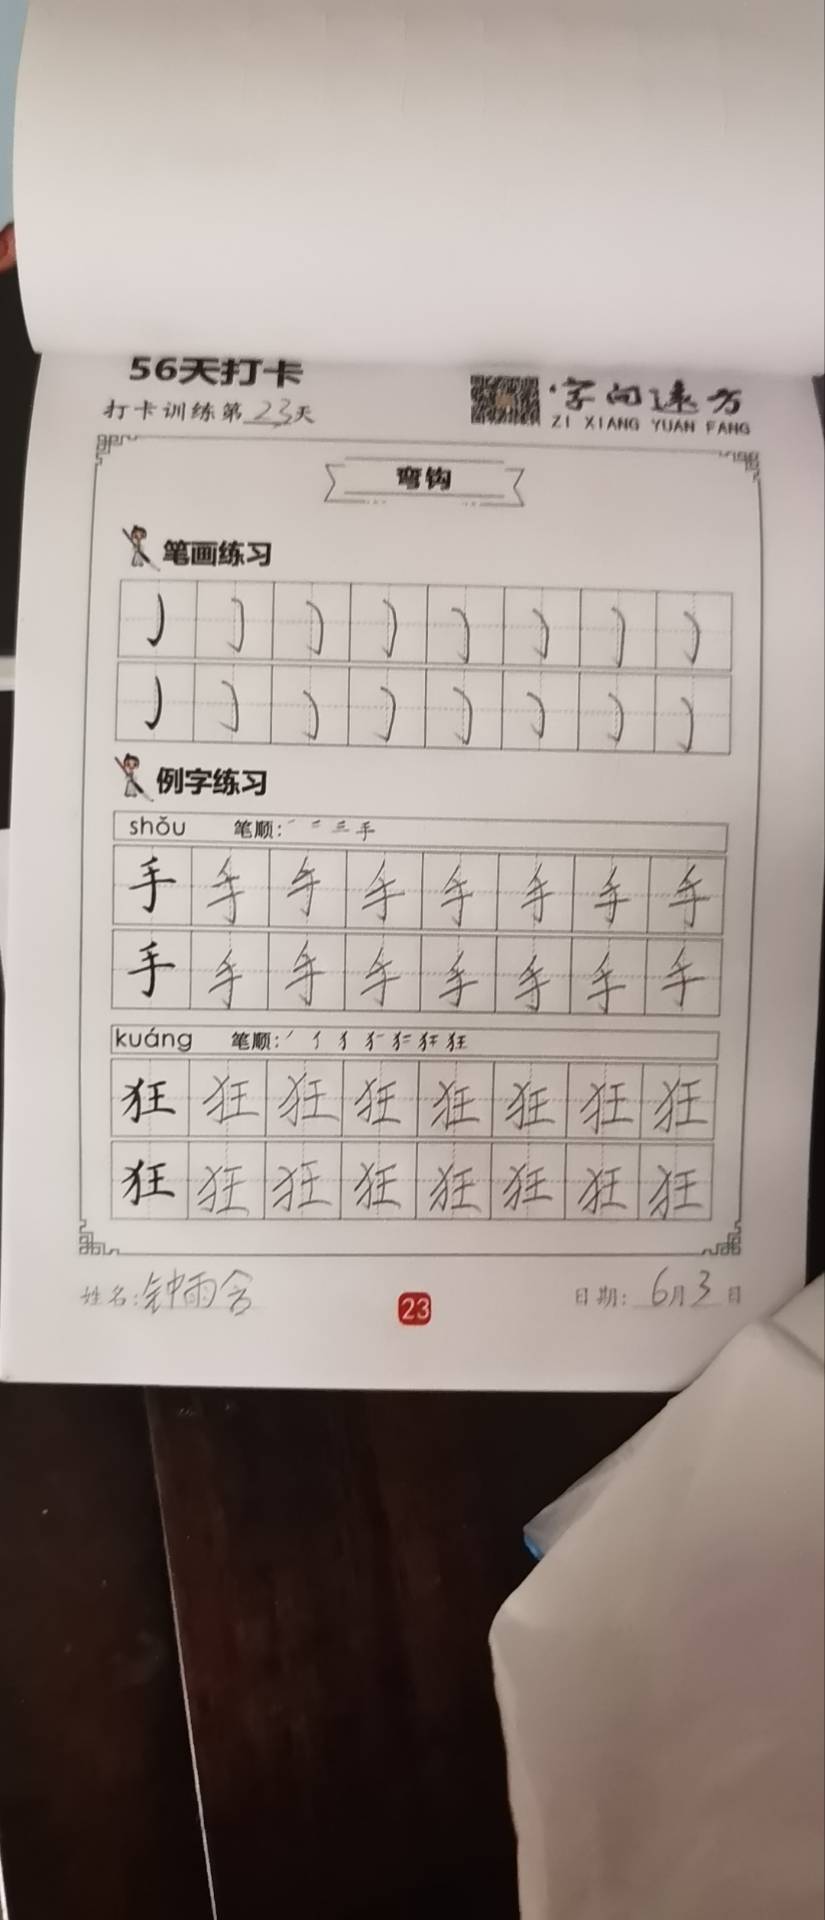 56天打卡
打卡训练第23天
字向远方
ZI XIANG YUAN FANG
弯钩
笔画练习
例字练习
shǒu 笔顺: 手
手 手 手 手 手 手 手 手
手 手 手 手 手 手 手 手
kuáng 笔顺: 狂
狂 狂 狂 狂 狂 狂 狂 狂
狂 狂 狂 狂 狂 狂 狂 狂
姓名:钟雨含
23
日期:6月3日